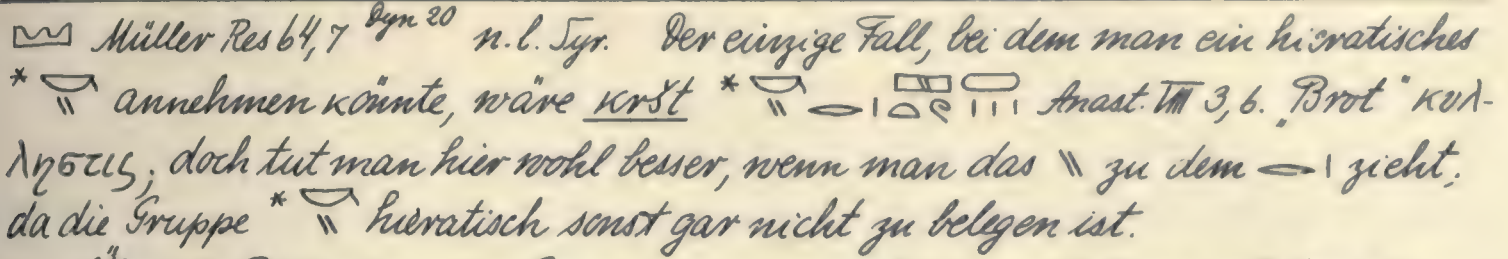 𓈉 Müller Res 64,7 Dyn 20 n. l. Syr. Der einzige Fall, bei dem man ein hieratisches
* 𓎡 \\ annehmen könnte, wäre kršt * 𓎡 \\ 𓂋 𓏤 𓈙 𓏏 𓏲 𓏥 Anast. III 3,6. „Brot“ κυλ-
ληστις; doch tut man hier wohl besser, wenn man das \\ zu dem 𓂋 𓏤 zieht,
da die Gruppe * 𓎡 \\ hieratisch sonst gar nicht zu belegen ist.